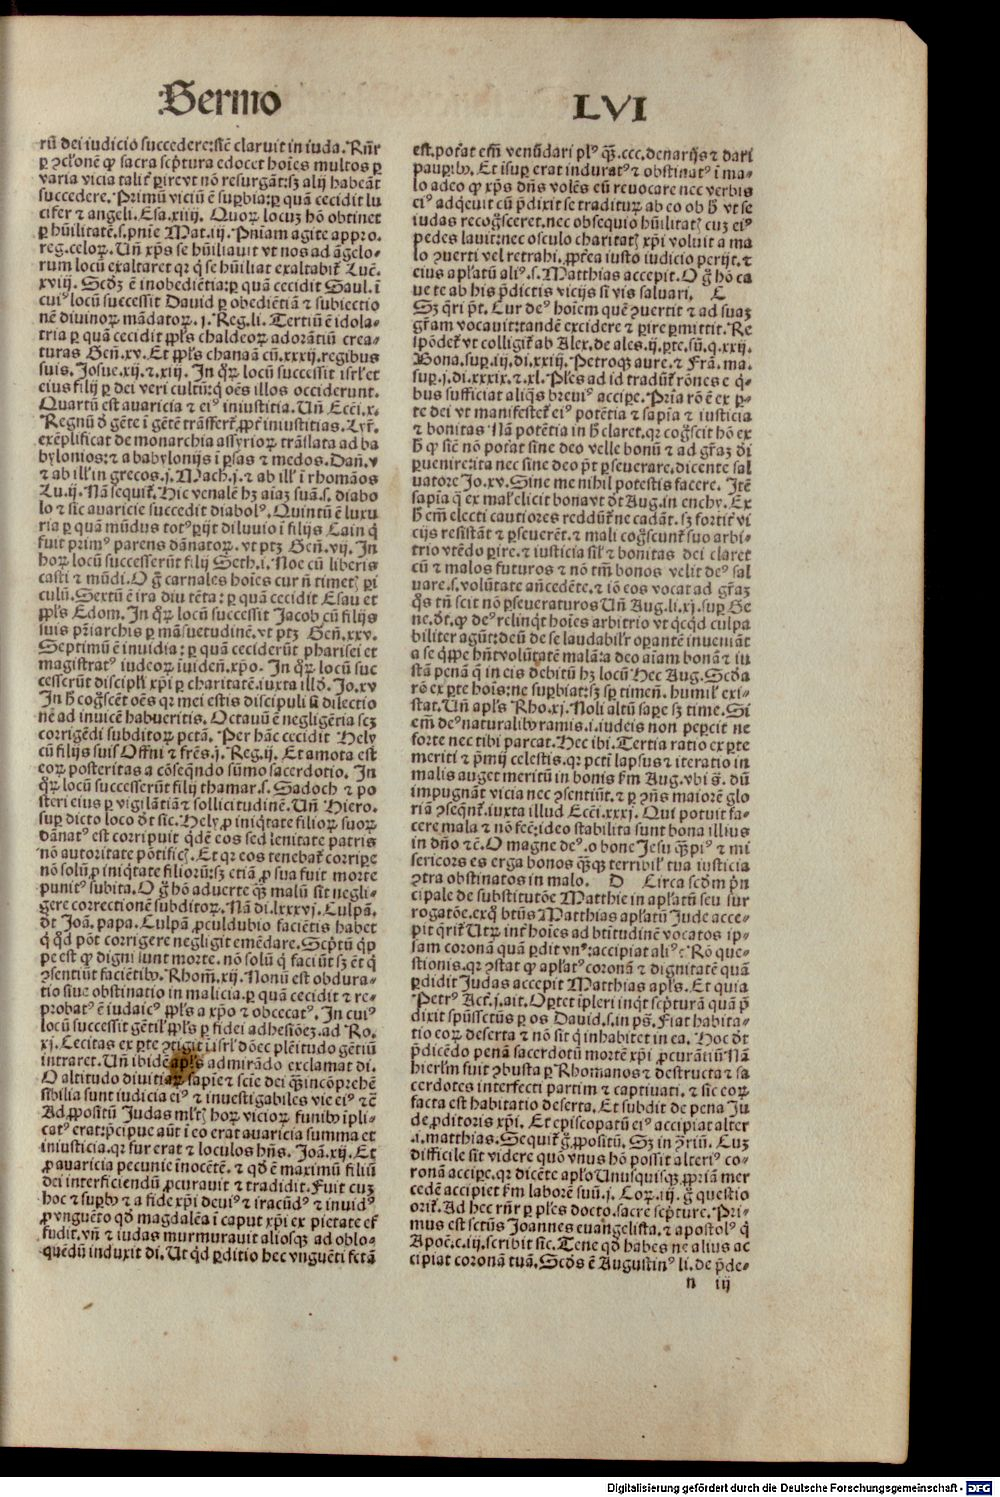 Sermo LVI
rū dei iudicio succedere:sic̄ claruit in iuda. Rn̄r
ꝑ ꝯcl'onē ꝙ sacra scp̄tura edocet hoīes multos ꝑ
varia vicia talit̄ ꝑire vt nō resurgāt:sꝫ alij habeāt
succedere. Primū viciū ē suꝑbia:ꝑ quā cecidit lu
cifer ⁊ angeli. Esa.xiiij. Quoꝝ locuꝫ hō obtinet
ꝑ hūilitatē.s.pn̄ie Mat.iij. Pn̄iam agite appro.
reg.celoꝝ. Un̄ xp̄s se hūiliauit vt nos ad āgelo-
rum locū exaltaret qr q̇ se hūiliat exaltabit̄ Luc̄.
xviij. Scd̄ꝫ ē inobediētia:ꝑ quā cecidit Saul. ī
cui⁹ locū successit Dauid ꝑ obediētiā ⁊ subiectio
nē diuinoꝝ mādatoꝝ. j. Reg.li. Tertiū ē idola-
tria ꝑ quā cecidit ppl̄s chaldeoꝝ adorātiū crea-
turas Gen̄.xv. Et ppl̄s chanaā cū.xxxij.regibus
suis. Josue.xij.⁊.xiij. In q̄ꝝ locū successit isrl̄ et
eius filij ꝑ dei veri cultū:q̇ oēs illos occiderunt.
Quartū est auaricia ⁊ ei⁹ iniustitia. Un̄ Ecc̄i.x.
Regnū d̄ gēte ī gētē trāsfert̄.ꝓpt̄ iniustitias. Lyr̄.
exēplificat de monarchia assyrioꝝ trāslata ad ba
bylonios:⁊ a babylonijs ī ꝑsas ⁊ medos. Dan̄.v
⁊ ab ill' in grecos.j. Mach.j.⁊ ab ill' ī rhomāos
Lu.ij. Nā sequit̄. Hic venalē hꝫ aīaꝫ suā.s. diabo
lo ⁊ sic auaricie succedit diabol⁹. Quintū ē luxu
ria ꝑ quā mūdus tot⁹ ꝑijt diluuio ī filijs Cain q̇
fuit prim⁹ parens dānatoꝝ. vt ptꝫ Gen̄.vij. In
hoꝝ locū successerūt filij Seth.i. Noe cū liberis
casti ⁊ mūdi. O ḡ carnales hoīes cur n̄ timetꝭ ꝑi
culū. Sextū ē ira diu tēta:ꝑ quā cecidit Esau et
ppl̄s Edom. In q̄ꝝ locū successit Jacob cū filijs
suis pr̄iarchis ꝑ māsuetudinē.vt ptꝫ Gen̄.xxv.
Septimū ē inuidia:ꝑ quā ceciderūt pharisei et
magistrat⁹ iudeoꝝ iuidēn.xp̄o. In q̄ꝝ locū suc
cesserūt discipl̄i xp̄i ꝑ charitatē.iuxta illd̄. Jo.xv
In h̄ cog̓scēt oēs qr mei estis discipuli si dilectio
nē ad inuicē habueritis. Octauū ē negligētia scꝫ
corrigēdi subditoꝝ pctā. Per hāc cecidit Hely
cū filijs suis Offni ⁊ frēs.j. Reg.ij. Et amota est
eoꝝ posteritas a cōseqn̄do sūmo sacerdotio. In
q̄ꝝ locū successerūt filij thamar.s. Sadoch ⁊ po
steri eius ꝑ vigilātiā ⁊ sollicitudinē. Un̄ Hiero.
suꝑ dicto loco dt̄ sic. Hely ꝓ iniq̇tate filioꝝ suoꝝ
dānat⁹ est corripuit qdē eos sed lenitate patris
nō autoritate pōtificꝭ. Et qr eos tenebat̄ corriꝑe
nō solū ꝓ iniq̇tate filiorū:sꝫ etiā ꝓ sua fuit morte
punit⁹ subita. O ḡ hō aduerte q̄ꝫ malū sit negli-
gere correctionē subditoꝝ. Nā di.lxxxvj. Culpā.
dt̄ Joā.papa. Culpā ꝓculdubio facietis habet
q̇ qd̄ pōt corrigere negligit emēdare. Scp̄tū q̇p
pe est ꝙ digni sunt morte. nō solū q̇ faciūt sꝫ ēt q̇
ꝯsentiūt faciētibꝰ. Rhom̄.xij. Nonū est obdura-
tio siue obstinatio in malicia.ꝑ quā cecidit ⁊ re-
probat⁹ ē iudaic⁹ ppl̄s a xp̄o ⁊ obcecat⁹. In cui⁹
locū successit gētil' ppl̄s ꝑ fidei adhesiōeꝫ.ad Ro.
xj. Cecitas ex ꝑte ꝯtigit ī isrl̄ dōec plēitudo gētiū
intraret. Un̄ ibidē apl̄s admirādo exclamat di.
O altitudo diuitiaꝝ sapīe ⁊ scīe dei q̄ꝫ incōprehē
sibilia sunt iudicia ei⁹ ⁊ inuestigabiles vie ei⁹ ⁊ c̄.
Ad ꝓpositū Judas ml̄tꝭ hoꝝ vicioꝝ funibꝰ īpli-
cat⁹ erat:pn̄cipue aūt ī eo erat auaricia summa et
iniusticia.qr fur erat ⁊ loculos hn̄s. Joā.xij. Et
ꝓ auaricia pecunie īnocētē.⁊ qd̄ ē maximū filiū
dei interficiendū ꝓcurauit ⁊ tradidit. Fuit cuꝫ
hoc ⁊ suꝑbꝰ ⁊ a fide xp̄i deui⁹ ⁊ iracūd⁹ ⁊ inuid⁹
ꝓ vnguēto qd̄ magdalēa ī caput xp̄i ex pietate ef
fudit.vn̄ ⁊ iudas murmurauit aliosqꝫ ad oblo-
quēdū induxit di. Ut qd̄ ꝑditio hec vnguēti fctā
est.potāt em̄ venūdari pl⁹ q̄ꝫ.ccc.denarijs ⁊ dari
pauꝑibꝰ. Et isuꝑ erat indurat⁹ ⁊ obstinat⁹ ī ma-
lo adeo ꝙ xp̄s dn̄s volēs eū reuocare nec verbis
ei⁹ adq̇euit cū p̄dixit se traditurꝰ ab eo ob h̄ vt se
iudas recog̓sceret.nec obsequio hūilitatꝭ cuꝫ ei⁹
pedes lauit:nec osculo charitatꝭ xp̄i voluit a ma
lo ꝯuerti vel retrahi. ꝓpt̄ea iusto iudicio perijt.⁊
eius apl̄atū ali⁹.s. Matthias accepit. O ḡ hō ca
ue te ab his p̄dictis vicijs si vis saluari. C
Sꝫ q̄ri pt̄. Cur de⁹ hoīem quē ꝯuertit ⁊ ad suaꝫ
gr̄am vocauit:tandē excidere ⁊ ꝑire ꝑmittit. Re
spōdet̄ vt colligit̄ ab Alex.de ales.ij.ꝑte.sū.q.xxij.
Bona.suꝑ.iij.di.xxiij. Petroqꝫ aure.⁊ Frā.ma.
suꝑ.j.di.xxxix.⁊.xl. Pl̄es ad id tradūt̄ rōnes e q̇-
bus sufficiat aliq̄s breui⁹ acciꝑe. Pria rō ē ex ꝑ-
te dei vt manifestet̄ ei⁹ potētia ⁊ sapīa ⁊ iusticia
⁊ bonitas Nā potētia in h̄ claret.qr cog̓scit hō ex
h̄ ꝙ sic̄ nō potāt sine deo velle bonū ⁊ ad gr̄aꝫ di
ꝑuenire:ita nec sine deo pt̄ ꝑseuerare.dicente sal
uatore Jo.xv. Sine me nihil potestis facere. Itē
sapīa q̇ ex mal' elicit bona vt dt̄ Aug.in enchy. Ex
h̄ em̄ electi cautiores reddūt̄ ne cadāt.sꝫ fortit̄ vi
cijs resistāt ⁊ ꝑseuerēt.⁊ mali cog̓scunt̄ suo arbi-
trio vtēdo ꝑire.⁊ iusticia sil' ⁊ bonitas dei claret
cū ⁊ malos futuros ⁊ nō tm̄ bonos velit de⁹ sal
uare.s.volūtate an̄cedēte.⁊ iō eos vocat ad gr̄aꝫ
q̄s tn̄ scit nō ꝑseueraturos Un̄ Aug.li.xj.suꝑ Ge
ne.dt̄.ꝙ de⁹ relinq̇t hoīes arbitrio vt qcqd̄ culpa
biliter agūt:deū de se laudabil'r oꝑantē inueniāt
a se q̇ppe hn̄t volūtatē malā:a deo aīam bonā ⁊ iu
stā penā q̇ in eis debitū hꝫ locū Hec Aug. Scd̄a
rō ex ꝑte hoīs:ne suꝑbiat:sꝫ sp̄ timen̄.humil' exi-
stat. Un̄ apl̄s Rho.xj. Noli altū saꝑe sꝫ time. Si
em̄ de⁹ naturalibꝰ ramis.i.iudeis non peꝑcit ne
forte nec tibi parcat. Hec ibi. Tertia ratio ex ꝑte
meriti ⁊ p̄mij celestis.qr pcti lapsus ⁊ iteratio in
malis auget meritū in bonis km̄ Aug.vbi s̄. dū
impugnāt vicia nec ꝯsentiūt.⁊ ꝑ ꝯn̄s maiorē glo
riā ꝯseqn̄t̄.iuxta illud Ecc̄i.xxxj. Qui potuit fa-
cere mala ⁊ nō fec̄:ideo stabilita sunt bona illius
in dn̄o ⁊ c̄. O magne de⁹.o bone Jesu q̄ꝫ pi⁹ ⁊ mi
sericors es erga bonos q̄ꝫqꝫ terribil' tua iusticia
ꝯtra obstinatos in malo. D Circa scd̄m p̄n
cipale de substitutōe Matthie in apl̄atū seu sur
rogatōe.exq̇ btūs Matthias apl̄atū Jude acce-
pit q̄rit̄ Utꝝ int̄ hoīes ad btitudinē vocatos ip-
sam coronā quā ꝑdit vn⁹:accipiat ali⁹ ꝛ Rō que-
stionis.qr ꝯstat ꝙ apl̄at⁹ coronā ⁊ dignitatē quā
ꝑdidit Judas accepit Matthias apl̄s. Et quia
Petr⁹ Act̄.j.ait. Oꝑtet īpleri inq̇t scp̄turā quā p̄
dixit spūssctūs ꝑ os Dauid.s.in ps̄. Fiat habita-
tio eoꝝ deserta ⁊ nō sit q̇ inhabitet in ea. Hoc dt̄
p̄dicēdo penā sacerdotū mortē xp̄i ꝓcurātiū Nā
hierl̄m fuit ꝯbusta ꝑ Rhomanos ⁊ destructa ⁊ sa
cerdotes interfecti partim ⁊ captiuati. ⁊ sic eoꝝ
facta est habitatio deserta. Et subdit de pena Ju
de ꝓditoris xp̄i. Et episcopatū ei⁹ accipiat alter
.i.matthias. Sequit̄ ḡ ꝓpositū. Sꝫ in ꝯriū. Cuꝫ
difficile sit videre quō vnus hō possit alteri⁹ co-
ronā acciꝑe.qr dicēte apl̄o Unusquisqꝫ ꝓpriā mer
cedē accipiet km̄ laborē suū.j. Coꝝ.iij. ḡ questio
orit̄. Ad hec rn̄r ꝑ pl̄es docto.sacre scp̄ture. Pri-
mus est sctūs Joannes euāgelista.⁊ apostol⁹ q̇
Apoc̄.c.iij.scribit sic. Tene qd̄ habes ne alius ac
cipiat coronā tuā. Scd̄s ē Augustin⁹ li.de p̄de-
n iij
Digitalisierung gefördert durch die Deutsche Forschungsgemeinschaft - DFG